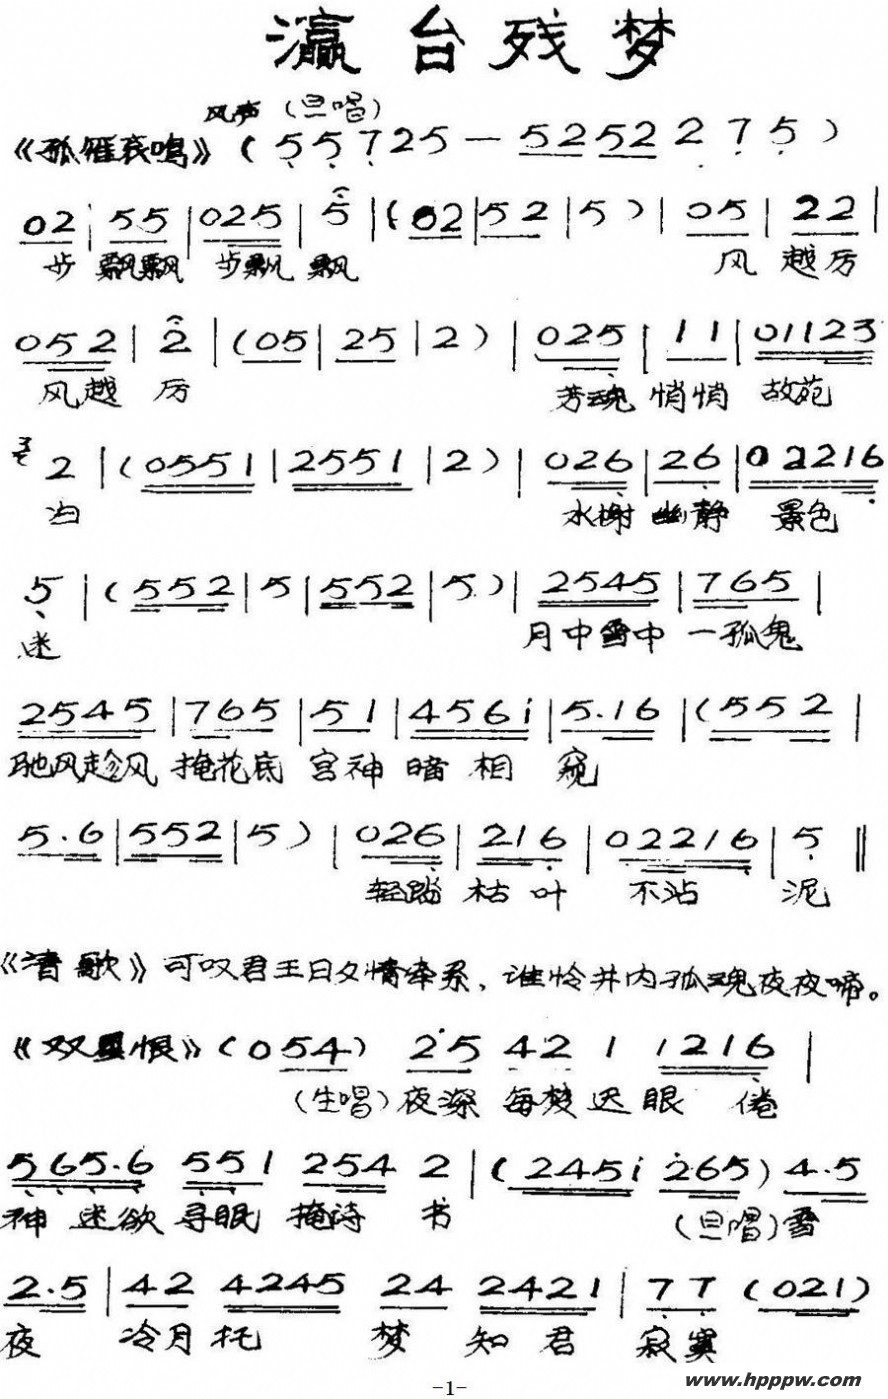 瀛台残梦
风声 (旦唱)
《孤雁哀鸣》 ( 5 5 7 2 5 — 5 2 5 2 2 7 5 )
0 2 | 5 5 | 0 2 5 | 5 | ( 0 2 | 5 2 | 5 ) | 0 5 | 2 2 |
步 飘飘 步飘 飘 风 越厉
0 5 2 | 2 | ( 0 5 | 2 5 | 2 ) | 0 2 5 | 1 1 | 0 1 1 2 3
风越 厉 芳魂 悄悄 故苑
2 | ( 0 5 5 1 | 2 5 5 1 | 2 ) | 0 2 6 | 2 6 | 0 2 2 1 6
归 水榭 幽静 景色
5 | ( 5 5 2 | 5 | 5 5 2 | 5 ) | 2 5 4 5 | 7 6 5 |
迷 月中雪中 一孤鬼
2 5 4 5 | 7 6 5 | 5 1 | 4 5 6 i | 5 . 1 6 | ( 5 5 2 |
驰风趁风 掩花底 宫神 暗 相 窥
5 . 6 | 5 5 2 | 5 ) | 0 2 6 | 2 1 6 | 0 2 2 1 6 | 5 ‖
轻踏 枯 叶 不沾 泥
《清歌》可叹君王日夕情牵系，谁怜井内孤魂夜夜啼。
《双星恨》 ( 0 5 4 ) 2 5 4 2 1 1 2 1 6 |
(生唱) 夜深 每梦 迟 眼 倦
5 6 5 . 6 5 5 1 2 5 4 2 | ( 2 4 5 i 2 6 5 ) 4 . 5
神 迷欲 寻眠 掩诗 书 (旦唱) 雪
2 . 5 | 4 2 4 2 4 5 2 4 2 4 2 1 | 7 7 ( 0 2 1 )
夜 冷月托 梦 知 君 寂寞
www.hpppw.com
-1-